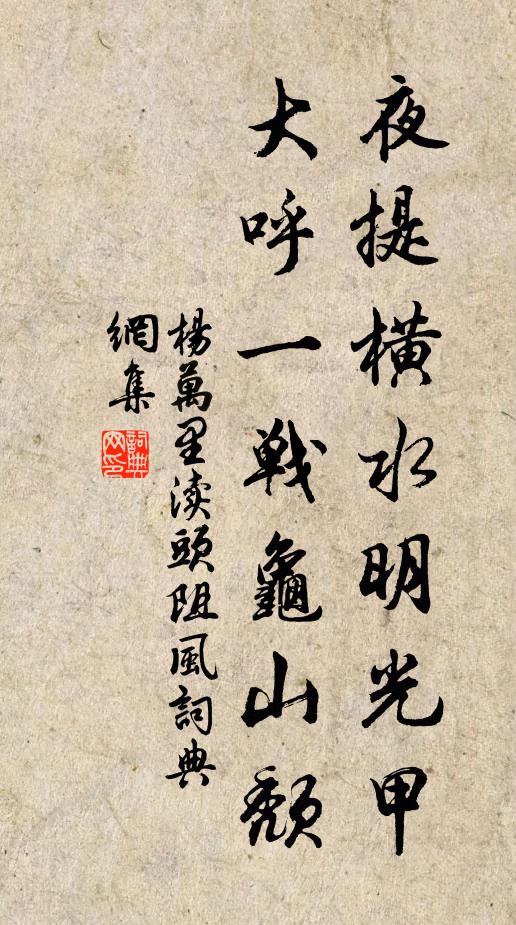 夜提橫水明光甲
大呼一戰龜山頹
楊萬里瀆頭阻風詞典
網集
詞典網印